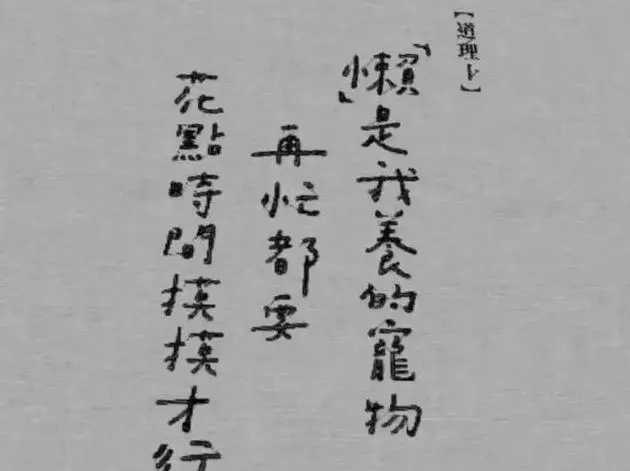 【道理卜】
「懶」是我養的寵物
再忙都要
花點時間摸摸才行